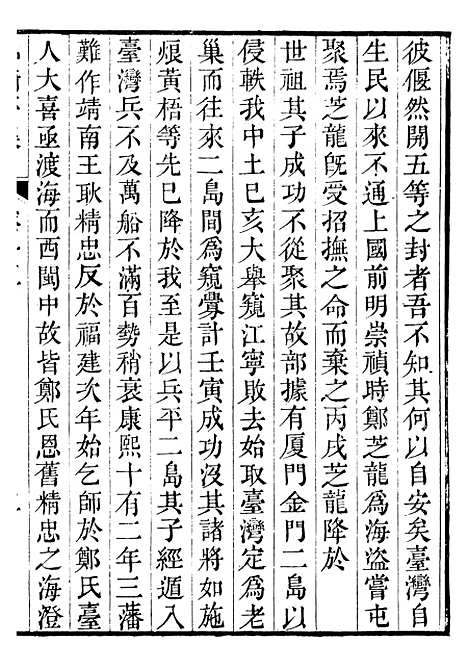 彼偃然開五等之封者吾不知其何以自安矣臺灣自
生民以來不通上國前明崇禎時鄭芝龍爲海盜嘗屯
聚焉芝龍旣受招撫之命而棄之丙戌芝龍降於
世祖其子成功不從聚其故部據有厦門金門二島以
侵軼我中土巳亥大舉窺江寧敗去始取臺灣定爲老
巢而往來二島間爲窺釁計壬寅成功沒其諸將如施
烺黃梧等先巳降於我至是以兵平二島其子經遁入
臺灣兵不及萬船不滿百勢稍衰康熙十有二年三藩
難作靖南王耿精忠反於福建次年始乞師於鄭氏臺
人大喜亟渡海而西閩中故皆鄭氏恩舊精忠之海澄